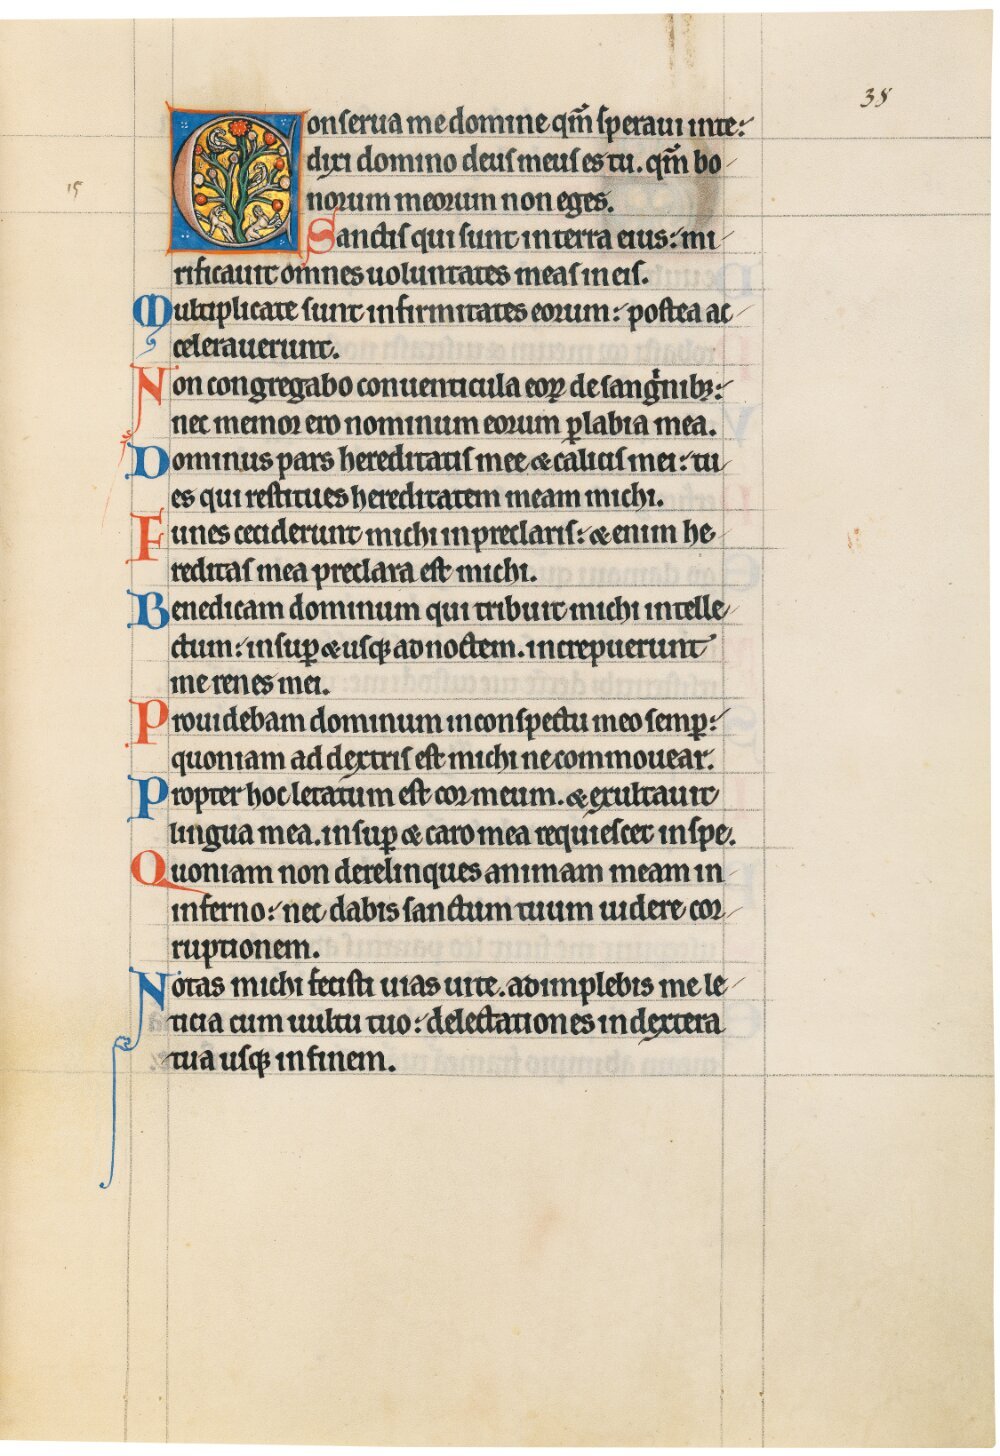 38
15
Conserua me domine qm̄ speraui in te:
dixi domino deus meus es tu. qm̄ bo
norum meorum non eges.
Sanctis qui sunt in terra eius: mi
rificauit omnes uoluntates meas in eis.
Multiplicate sunt infirmitates eorum: postea ac
celerauerunt.
Non congregabo conuenticula eoꝝ de sangͥnibꝫ:
nec memor ero nominum eorum ꝑ labia mea.
Dominus pars hereditatis mee & calicis mei: tu
es qui restitues hereditatem meam michi.
Funes ceciderunt michi in preclaris: & enim he
reditas mea preclara est michi.
Benedicam dominum qui tribuit michi intelle
ctum: insuꝑ & usqꝫ ad noctem. increpuerunt
me renes mei.
Prouidebam dominum in conspectu meo semꝑ:
quoniam ad dextris est michi ne commouear.
Propter hoc letatum est cor meum. & exultauit
lingua mea. insuꝑ & caro mea requiescet in spe.
Quoniam non derelinques animam meam in
inferno: nec dabis sanctum tuum uidere cor
ruptionem.
Notas michi fecisti uias uite. adimplebis me le
ticia cum uultu tuo: delectationes in dextera
tua usqꝫ in finem.